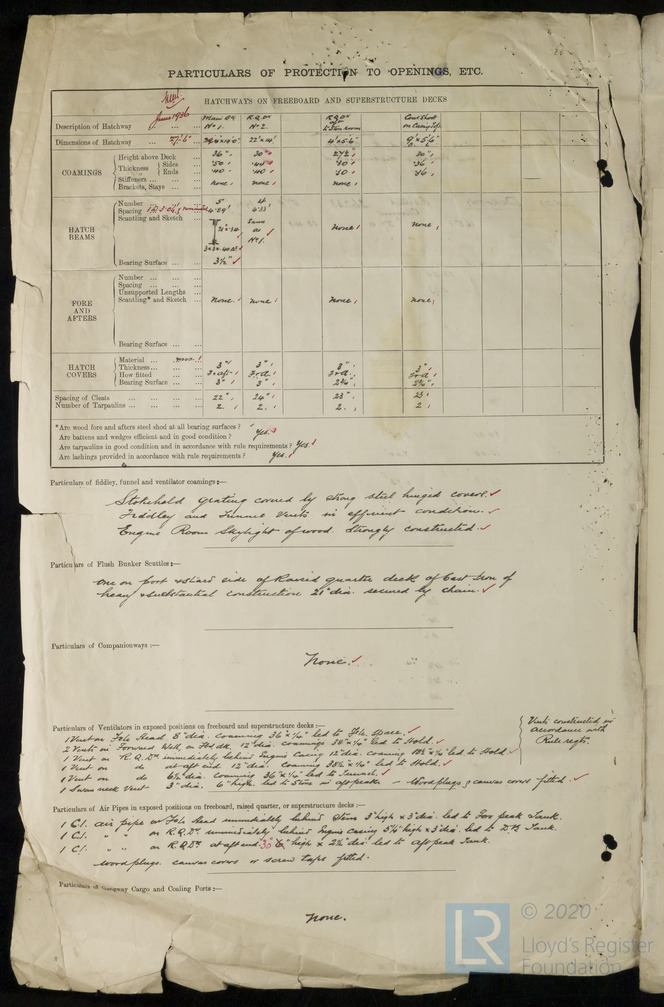 PARTICULARS OF PROTECTION TO OPENINGS, ETC.
HATCHWAYS ON FREEBOARD AND SUPERSTRUCTURE DECKS
June 1936
Description of Hatchway Main Dk No 1. R.Q.Dk No 2. R.Q.Dk Coal Shoot on Casing Top
Dimensions of Hatchway 27'6" 22'x14' 4'x5'6" 9'x5'6"
COAMINGS
Height above Deck 36" 30" 27½ 30"
Thickness Sides .50 .44 .40 .36
Ends .40 .40 .40 .36
Stiffeners
Brackets, Stays none. none. none.
HATCH BEAMS
Number 5 4
Spacing 4.59' 4.33'
Scantling and Sketch Same as No 1. none none.
Bearing Surface 3½"
FORE AND AFTERS
Number
Spacing
Unsupported Lengths
Scantling* and Sketch none. none. none. none.
Bearing Surface
HATCH COVERS
Material
Thickness 3" 3" 3" 3"
How fitted F+aft F+d F+d F+d
Bearing Surface 3" 3" 2¾" 2¾"
Spacing of Cleats 22" 24" 23" 23
Number of Tarpaulins 2. 2. 2. 2
*Are wood fore and afters steel shod at all bearing surfaces?
Are battens and wedges efficient and in good condition? Yes.
Are tarpaulins in good condition and in accordance with rule requirements? Yes.
Are lashings provided in accordance with rule requirements? Yes.
Particulars of fiddley, funnel and ventilator coamings:—
Stokehold grating covered by strong steel hinged covers.
Fiddley and Funnel Vents in efficient condition.
Engine Room Skylight of wood. Strongly constructed.
Particulars of Flush Bunker Scuttles:—
One on port & starb side of Raised quarter deck of Cast Iron of
heavy & substantial construction 21" dia. secured by chain.
Particulars of Companionways:—
None.
Particulars of Ventilators in exposed positions on freeboard and superstructure decks:—
1 Vent on F'cle Head 8" dia. coaming 36"x¼" led to F'cle Space.
2 Vents in Forward Well, on Hd dk. 12" dia. coamings 38"x¼" led to Hold.
1 Vent on R.Q.Dk immediately behind Engine Casing 12" dia. coaming led to Hold.
1 Vent on do at aft end 12" dia. coaming 38½"x¼" led to Hold.
1 Vent on do 6½ dia. coaming 36"x¼" led to
1 Swan neck Vent 3" dia. 6" high. led to Store in aft peak. - Wood plugs & canvas covers fitted.
Vents constructed in accordance with Rule reqts.
Particulars of Air Pipes in exposed positions on freeboard, raised quarter, or superstructure decks:—
1 C.I. air pipe on F'cle Head immediately behind Stem 3" high x 3" dia. led to Fore peak Tank.
1 C.I. " " on R.Q.Dk. immediately behind Engine casing 5¼" high x 3" dia. led to D.B. Tank.
1 C.I. " " on R.Q.Dk at aft end 30" high x 2½" dia led to Aft peak Tank.
Wood plugs. canvas covers or screw caps fitted.
Particulars of Gangway Cargo and Coaling Ports:—
None.
LR
© 2020
Lloyd's Register
Foundation